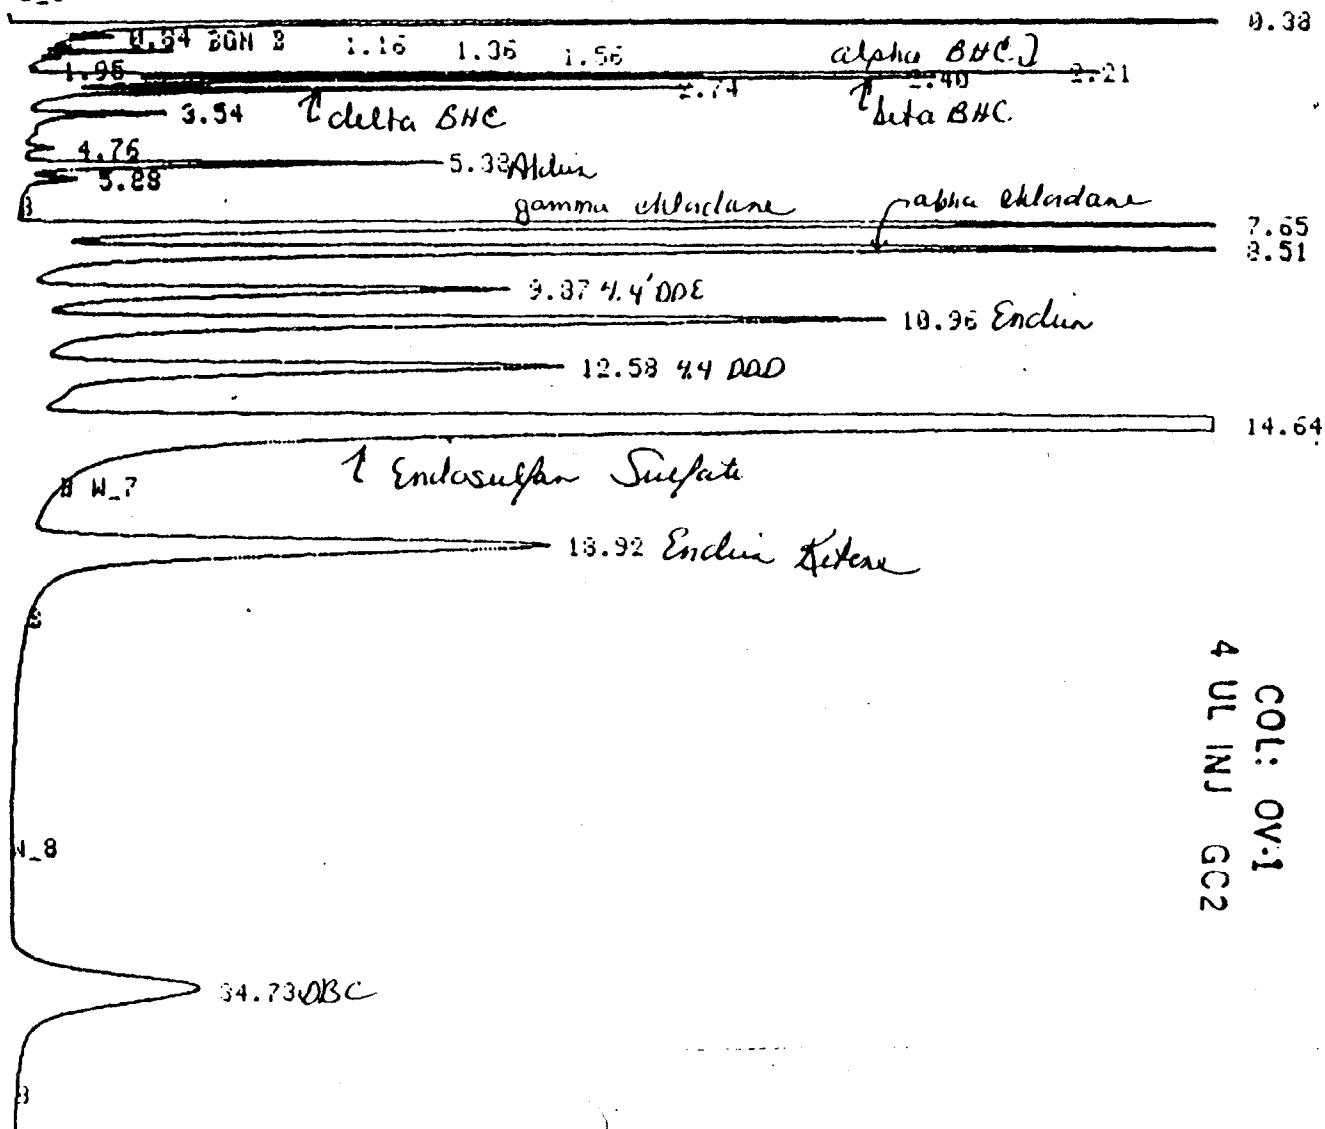 0.38
0.64 BGN B 1.16 1.36 1.56 alpha BHC]
1.96 2.74 2.40 2.21
3.54 ↑ delta BHC ↑ beta BHC
4.76
5.38 Aldrin
5.88
B gamma chlordane alpha chlordane
7.65
8.51
9.87 4,4'DDE
10.96 Endrin
12.58 4,4 DDD
14.64
↑ Endosulfan Sulfate
W_7
18.92 Endrin Ketone
B
COL: OV-1
4 UL INJ GC2
W_8
34.73 DBC
B